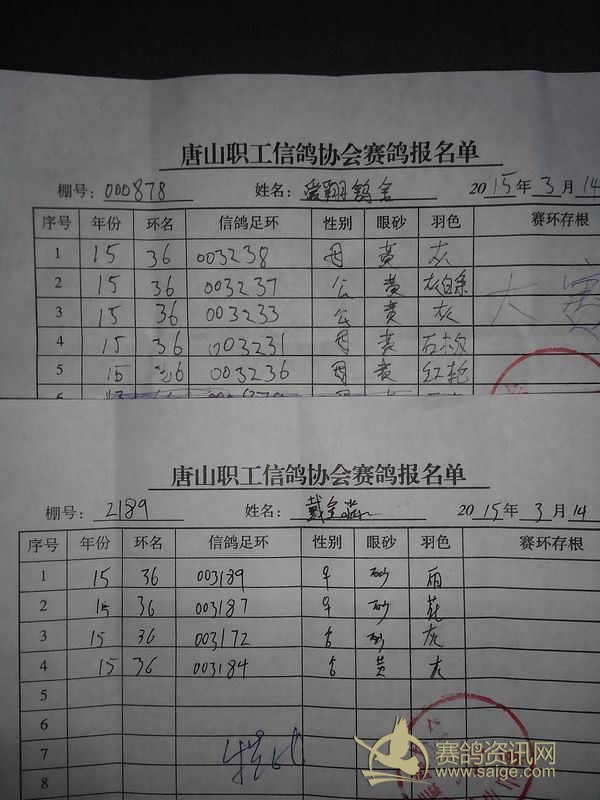 唐山职工信鸽协会赛鸽报名单
棚号: 000878 姓名: 爱翔鸽舍 2015年3月14
序号 年份 环名 信鸽足环 性别 眼砂 羽色 赛环存根
1 15 36 003238 母 黄 灰
2 15 36 003237 公 黄 灰白条
3 15 36 003233 公 黄 灰
4 15 36 003231 母 黄 石板
5 15 36 003236 母 黄 红轮
大
唐山职工信鸽协会赛鸽报名单
棚号: 2189 姓名: 戴 2015年3月14
序号 年份 环名 信鸽足环 性别 眼砂 羽色 赛环存根
1 15 36 003189 早 砂 雨
2 15 36 003187 早 砂 花
3 15 36 003172 砂 灰
4 15 36 003184 黄 灰
5
6
7
8
赛鸽资讯网
www.saige.com